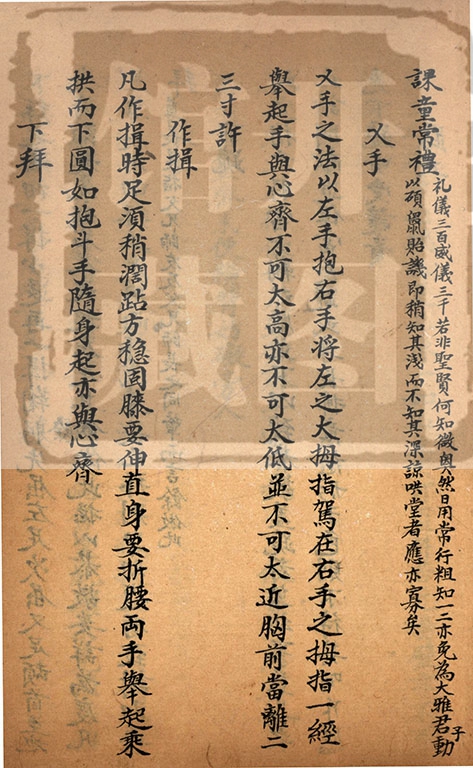 課童常禮
礼儀三百威儀三千若非聖賢何知微奧然日用常行粗知一二亦免為大雅君動子
以碩鼠貽譏即稍知其淺而不知其深諒哄堂者應亦寡矣
乂手
乂手之法以左手抱右手将左之大拇指駕在右手之拇指一經
舉起手與心齊不可太高亦不可太低並不可太近胸前當離二
三寸許
作揖
凡作揖時足湏稍濶跕方穏固膝要伸直身要折腰両手舉起乘
拱而下圓如抱斗手隨身起亦與心齊
下拜